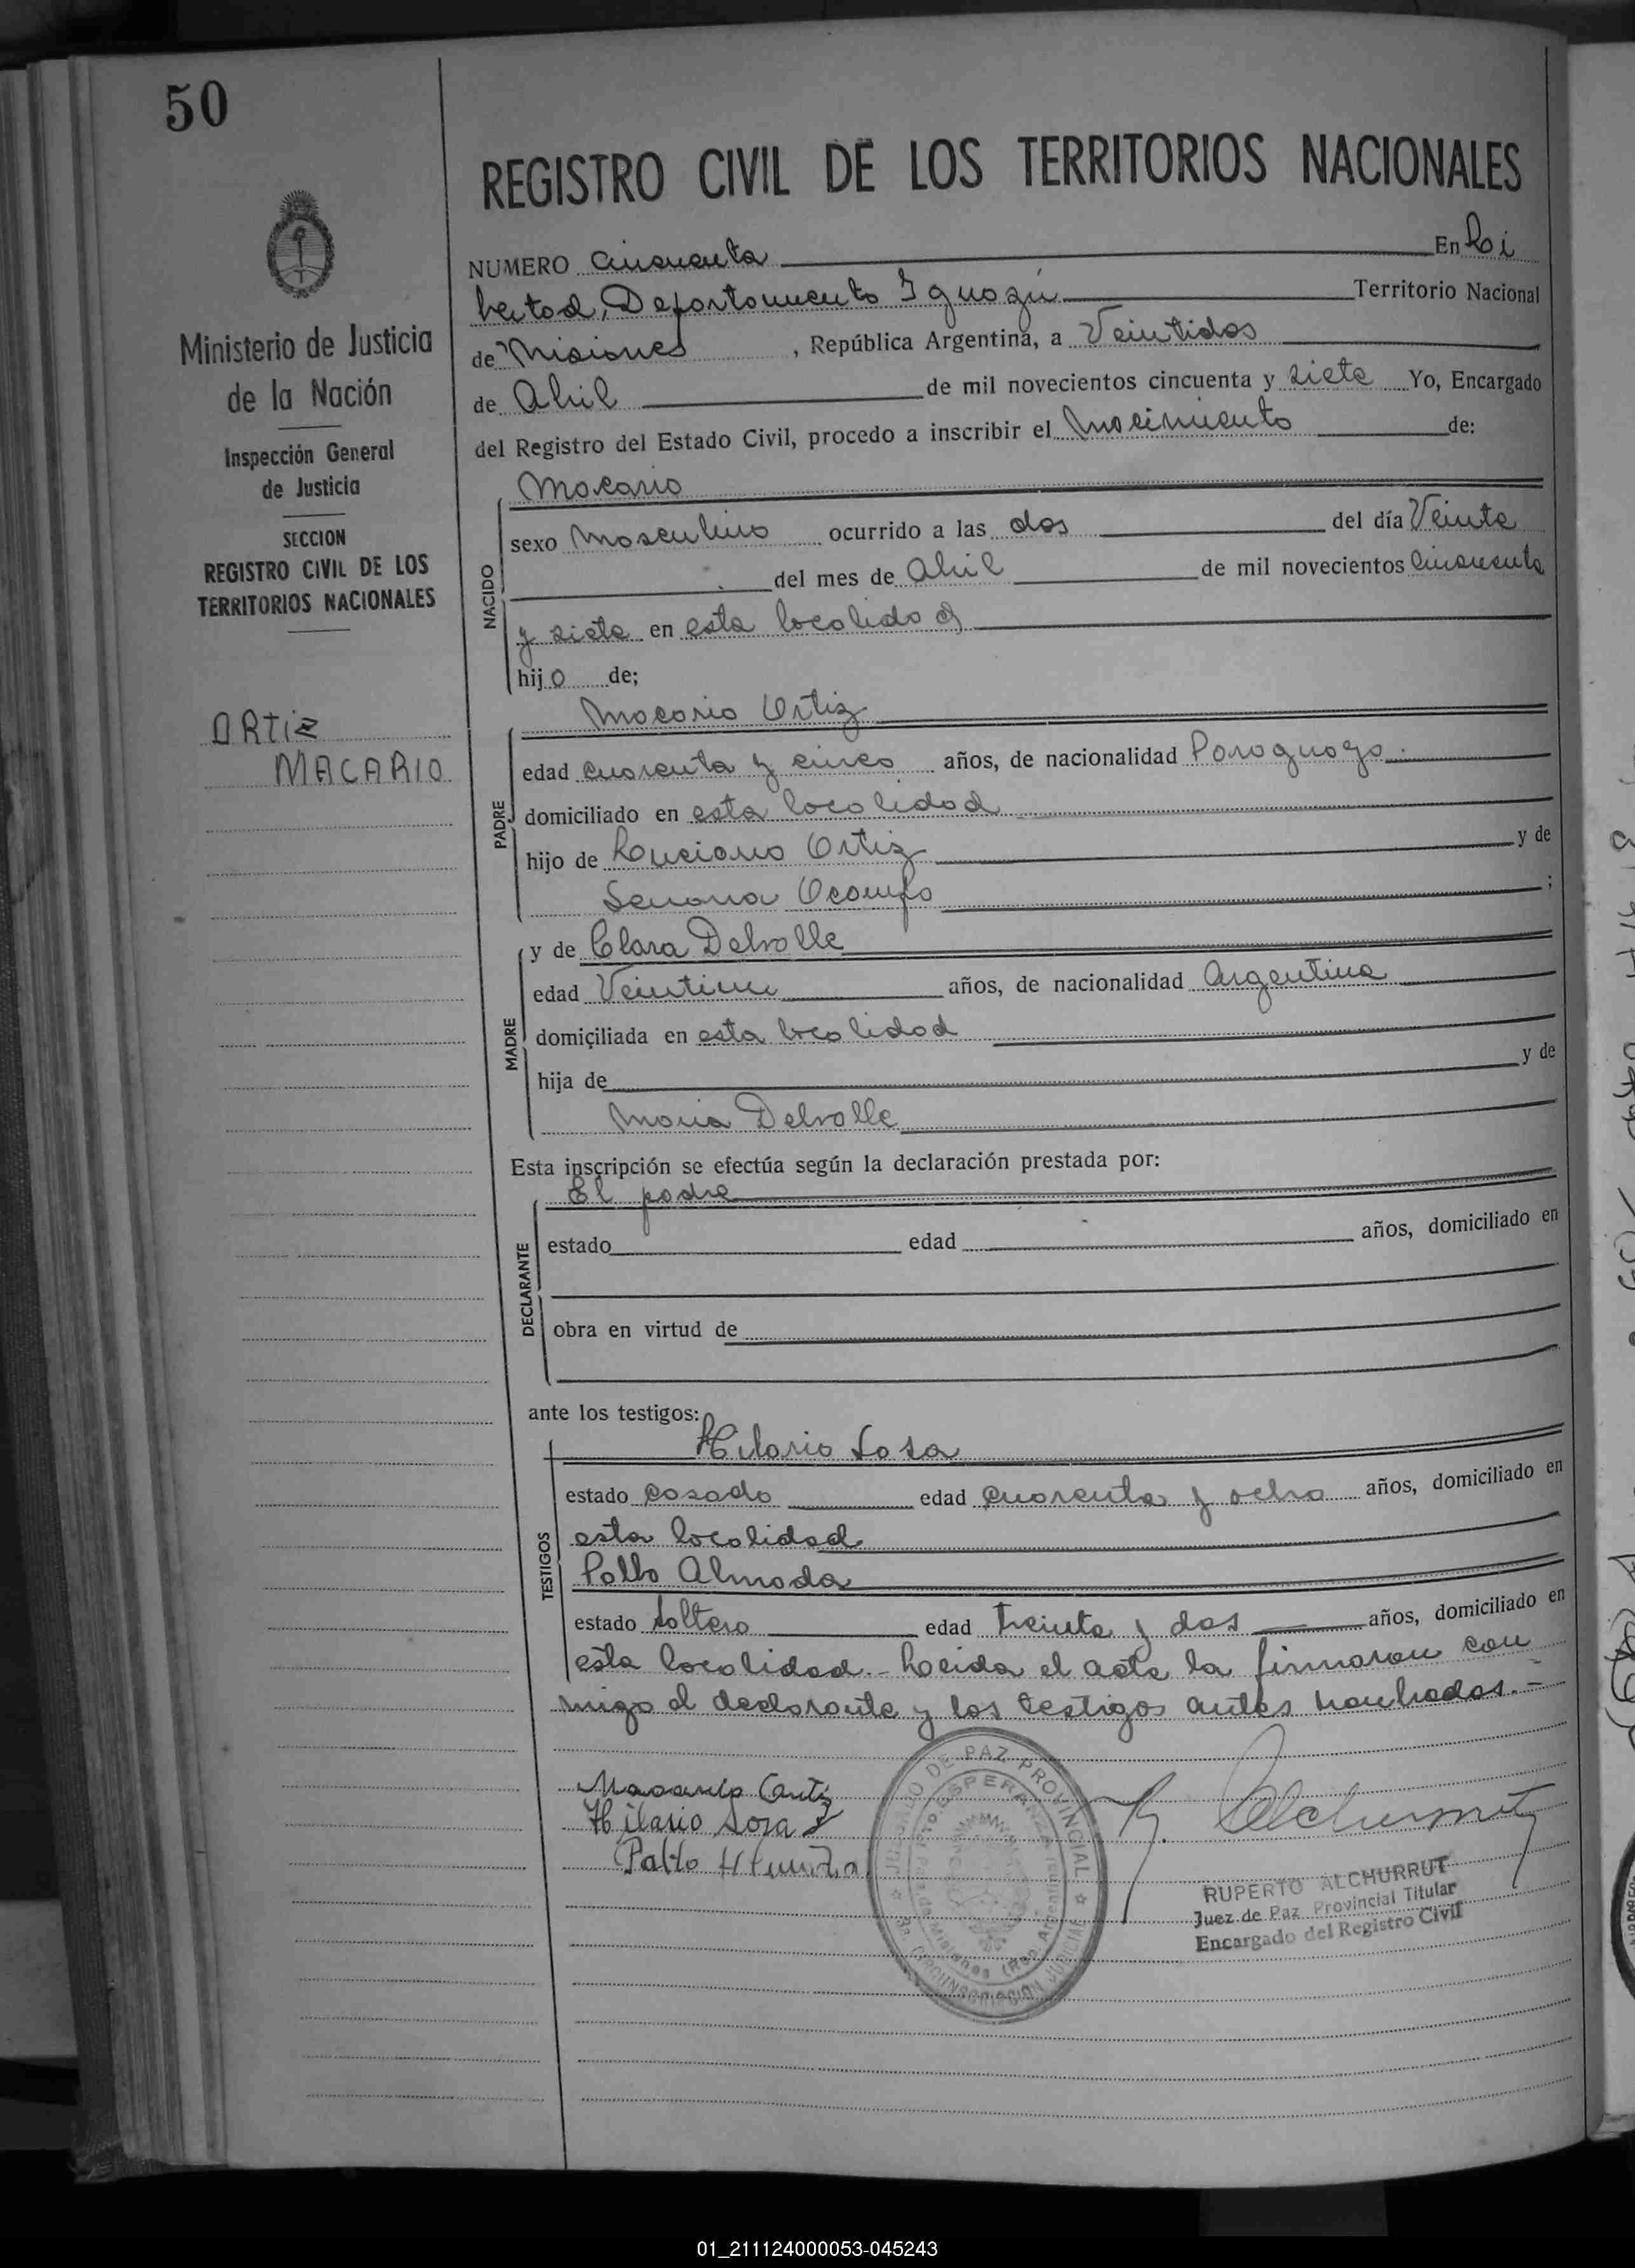 50
REGISTRO CIVIL DE LOS TERRITORIOS NACIONALES
NUMERO cincuenta En Li
bertad, Departamento Iguazú Territorio Nacional
de Misiones, República Argentina, a Veintidos
de Abril de mil novecientos cincuenta y siete Yo, Encargado
del Registro del Estado Civil, procedo a inscribir el Nacimiento de:
Ministerio de Justicia
de la Nación
Inspección General
de Justicia
SECCION
REGISTRO CIVIL DE LOS
TERRITORIOS NACIONALES
ORTIZ
MACARIO
NACIDO
Macario
sexo Masculino ocurrido a las dos del día Veinte
del mes de Abril de mil novecientos cincuenta
y siete en esta localidad
hijo de;
PADRE
Macario Ortiz
edad cuarenta y cinco años, de nacionalidad Paraguaya.
domiciliado en esta localidad
hijo de Luciano Ortiz y de
Ocampo ;
MADRE
y de Clara Delvalle
edad años, de nacionalidad Argentina
domiciliada en esta localidad
hija de y de
Maria Delvalle
Esta inscripción se efectúa según la declaración prestada por:
DECLARANTE
El padre
estado edad años, domiciliado en
obra en virtud de
ante los testigos:
TESTIGOS
Hilario Sosa
estado casado edad cuarenta y ocho años, domiciliado en
esta localidad
Pablo Almada
estado soltero edad treinta y dos años, domiciliado en
esta localidad.- Leida el acta la firmaron con
migo el declarante y los testigos antes nombrados.-
Macario Ortiz
Hilario Sosa
Pablo
JUZGADO DE PAZ PROVINCIAL
3a. CIRCUNSCRIPCION JUDICIAL
ESPERANZA
de Misiones (Rep. Argentina)
R. Alchurrut
RUPERTO ALCHURRUT
Juez de Paz Provincial Titular
Encargado del Registro Civil
01_211124000053-045243